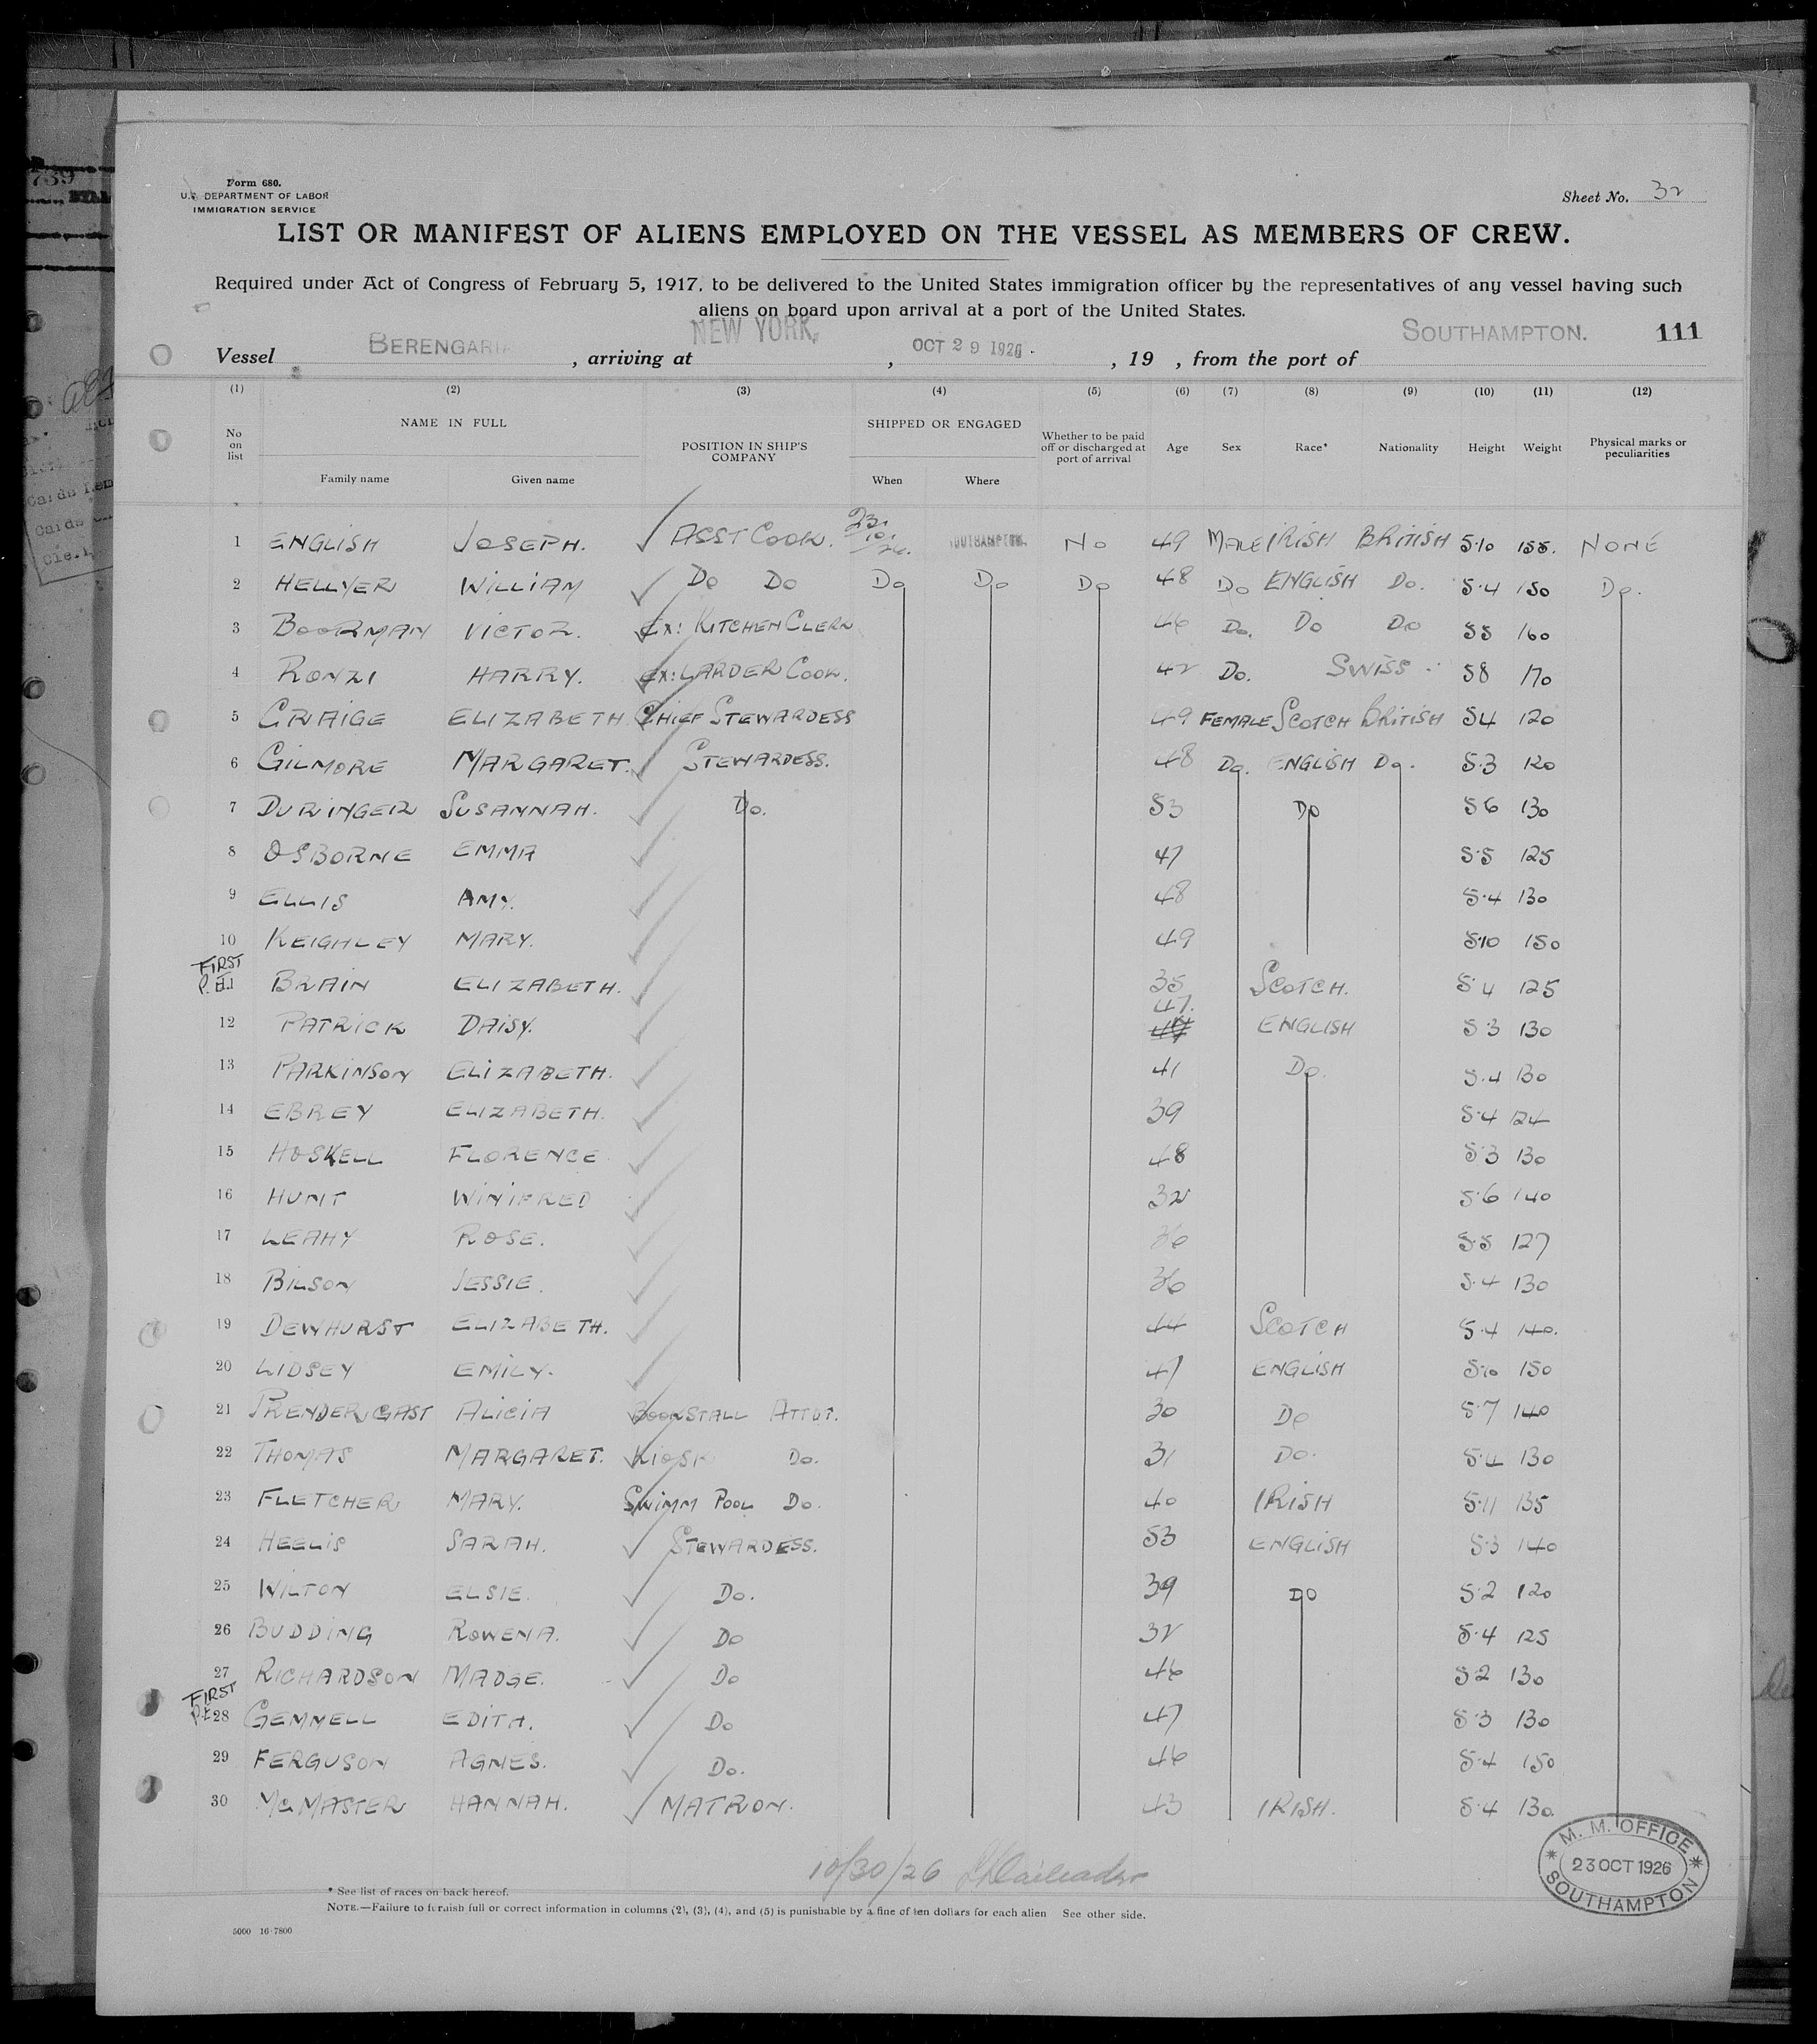 739
Form 680.
U.S. DEPARTMENT OF LABOR
IMMIGRATION SERVICE
Sheet No. 32
LIST OR MANIFEST OF ALIENS EMPLOYED ON THE VESSEL AS MEMBERS OF CREW.
Required under Act of Congress of February 5, 1917, to be delivered to the United States immigration officer by the representatives of any vessel having such
aliens on board upon arrival at a port of the United States.
Vessel BERENGARIA, arriving at NEW YORK, OCT 29 1926, 19 , from the port of SOUTHAMPTON. 111
(1) (2) (3) (4) (5) (6) (7) (8) (9) (10) (11) (12)
No on list NAME IN FULL Family name Given name POSITION IN SHIP'S COMPANY SHIPPED OR ENGAGED When Where Whether to be paid off or discharged at port of arrival Age Sex Race* Nationality Height Weight Physical marks or peculiarities
1 ENGLISH JOSEPH. ASST COOK. 23/10/26. SOUTHAMPTON. No 49 MALE IRISH BRITISH 5.10 155. NONE
2 HELLYER WILLIAM Do Do Do Do Do 48 Do ENGLISH Do. 5.4 150 Do.
3 BOORMAN VICTOR. EX: KITCHEN CLERK 46 Do. Do Do 55 160
4 RONZI HARRY. EX: LARDER COOK. 42 Do. SWISS 58 170
5 CRAIGE ELIZABETH. CHIEF STEWARDESS 49 FEMALE SCOTCH BRITISH 54 120
6 GILMORE MARGARET. STEWARDESS. 48 Do. ENGLISH Do. 5.3 120
7 DURINGER SUSANNAH. Do. 53 Do 56 130
8 OSBORNE EMMA 47 5.5 125
9 ELLIS AMY. 48 5.4 130
10 KEIGHLEY MARY. 49 5.10 150
FIRST
P.E. 11 BRAIN ELIZABETH. 35 SCOTCH. 5.4 125
12 PATRICK DAISY. 47. ENGLISH 5.3 130
13 PARKINSON ELIZABETH. 41 Do. 5.4 130
14 EBREY ELIZABETH. 39 5.4 124
15 HOSKELL FLORENCE 48 5.3 130
16 HUNT WINIFRED 32 5.6 140
17 LEAHY ROSE. 36 5.5 127
18 BILSON JESSIE. 36 5.4 130
19 DEWHURST ELIZABETH. 44 SCOTCH 5.4 140.
20 LIDSEY EMILY. 47 ENGLISH 5.10 150
21 PRENDERGAST ALICIA BOOKSTALL ATTDT. 30 Do 5.7 140
22 THOMAS MARGARET. KIOSK Do. 31 Do. 5.4 130
23 FLETCHER MARY. SWIMM POOL Do. 40 IRISH 5.11 135
24 HEELIS SARAH. STEWARDESS. 53 ENGLISH 5.3 140
25 WILTON ELSIE. Do. 39 DO 5.2 120
26 BUDDING ROWENA. Do 32 5.4 125
27 RICHARDSON MADGE. Do 46 5.2 130
FIRST
P.E. 28 GEMMELL EDITH. Do 47 5.3 130
29 FERGUSON AGNES. Do. 46 5.4 150
30 McMASTER HANNAH. MATRON. 43 IRISH. 5.4 130.
10/30/26
M. M. OFFICE
23 OCT 1926
SOUTHAMPTON
* See list of races on back hereof.
NOTE.—Failure to furnish full or correct information in columns (2), (3), (4), and (5) is punishable by a fine of ten dollars for each alien See other side.
5000 16-7800